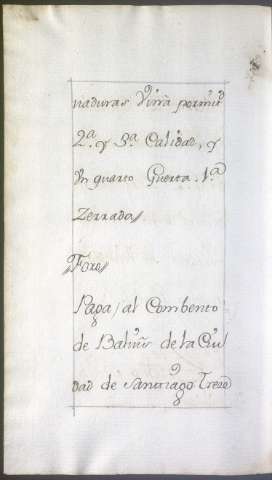 naduras Viña por mitd
2.ª y 3.ª Calidad, y
Un quarto Guerta 1.ª
Zerrados
Foros
Paga, al Combento
de Balvis de la Ciu
dad de Santiago Trece